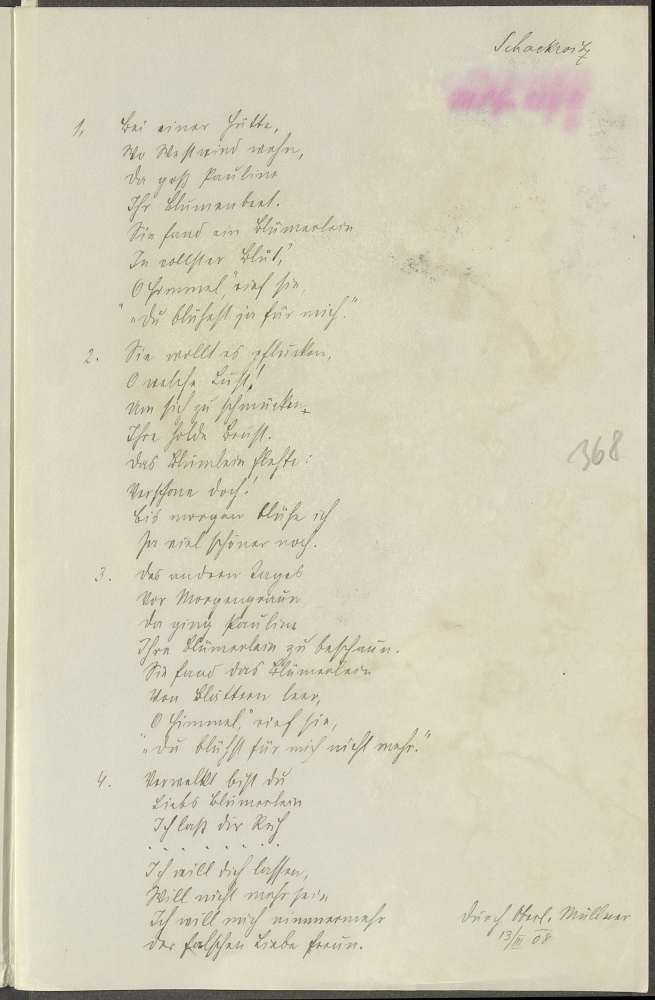 Schackwitz
1, Bei einer Hütte,
Wo Westwind wehn,
Da goß Pauline
Ihr Blumenbeet.
Sie fand ein Blümerlein
In vollster Blüt,
O Himmel," rief sie,
"Du blühest ja für mich."
2. Sie wollt es pflücken,
O welche Lust!
Um sich zu schmücken
Ihre holde Brust.
Das Blümlein flehte:
Verschone doch!
Bis morgen blühe ich
Ja viel schöner noch.
3. Des andern Tages
Vor Morgengraun
Da ging Pauline
Ihre Blümerlein zu beschaun.
Sie fand das Blümerlein
Von Blättern leer,
O Himmel," rief sie,
"Du blühst für mich nicht mehr."
4. Verwelkt bist du
Liebs Blümerlein
Ich laß dir Ruh
. . . . . . . .
Ich will dich lassen,
Will nicht mehr sein
Ich will mich nimmermehr
Der falschen Liebe freun.
Durch Oberl. Müllner
13/III 08
368